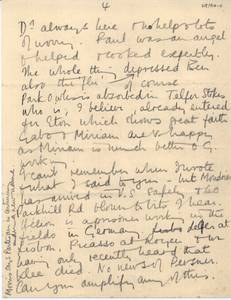 4
Dº always here & helps lots
of worry. Paul was an angel
& helped & cooked expertly.
The whole thing depressed Ben
also the flying of course
Park Owles is absorbed in Telfer Stokes
who is, I believe already entered
for Eton which shows great faith
Gabo & Miriam are v. happy
as Miriam is much better O.G.
working
I can't remember when I wrote
& what I said to you but Mondrian
has arrived in N.Y. safely & the
Parkhill Rd blown to bits I hear.
Helion is a prisoner working in the
fields in Germany
Lisbon, Picasso at Royan & we
having only recently heard that
Klee died. No news of Pevsner.
Can you amplify any of this.